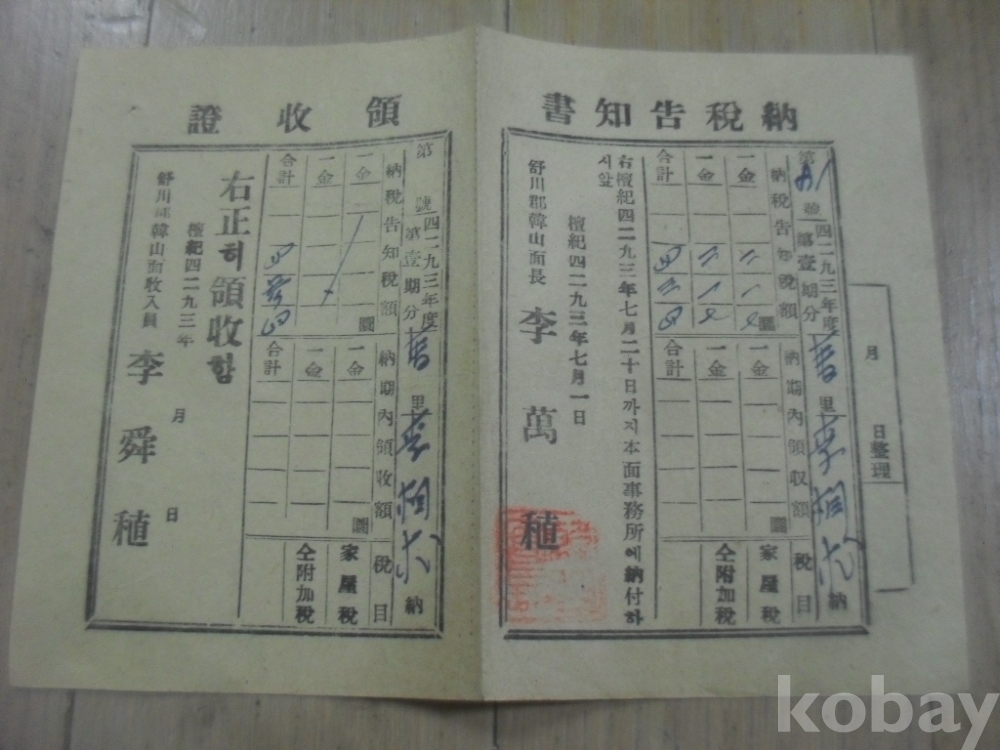 納稅告知書
第 號
四二九三年度
第壹期分
里 李 納
納稅告知稅額
納期內領收額
稅目
一金
圜
一金
圜
家屋稅
一金
一金
仝附加稅
合計
合計
右檀紀四二九三年七月二十日까지本面事務所에納付하
시앞
檀紀四二九三年七月一日
舒川郡韓山面長 李萬稙
月 日整理
領收證
第 號
四二九三年度
第壹期分
里 李 納
納稅告知稅額
納期內領收額
稅目
一金
圜
一金
圜
家屋稅
一金
一金
仝附加稅
合計
合計
右正히領收함
檀紀四二九三年 月 日
舒川郡韓山面收入員 李舜稙
kobay